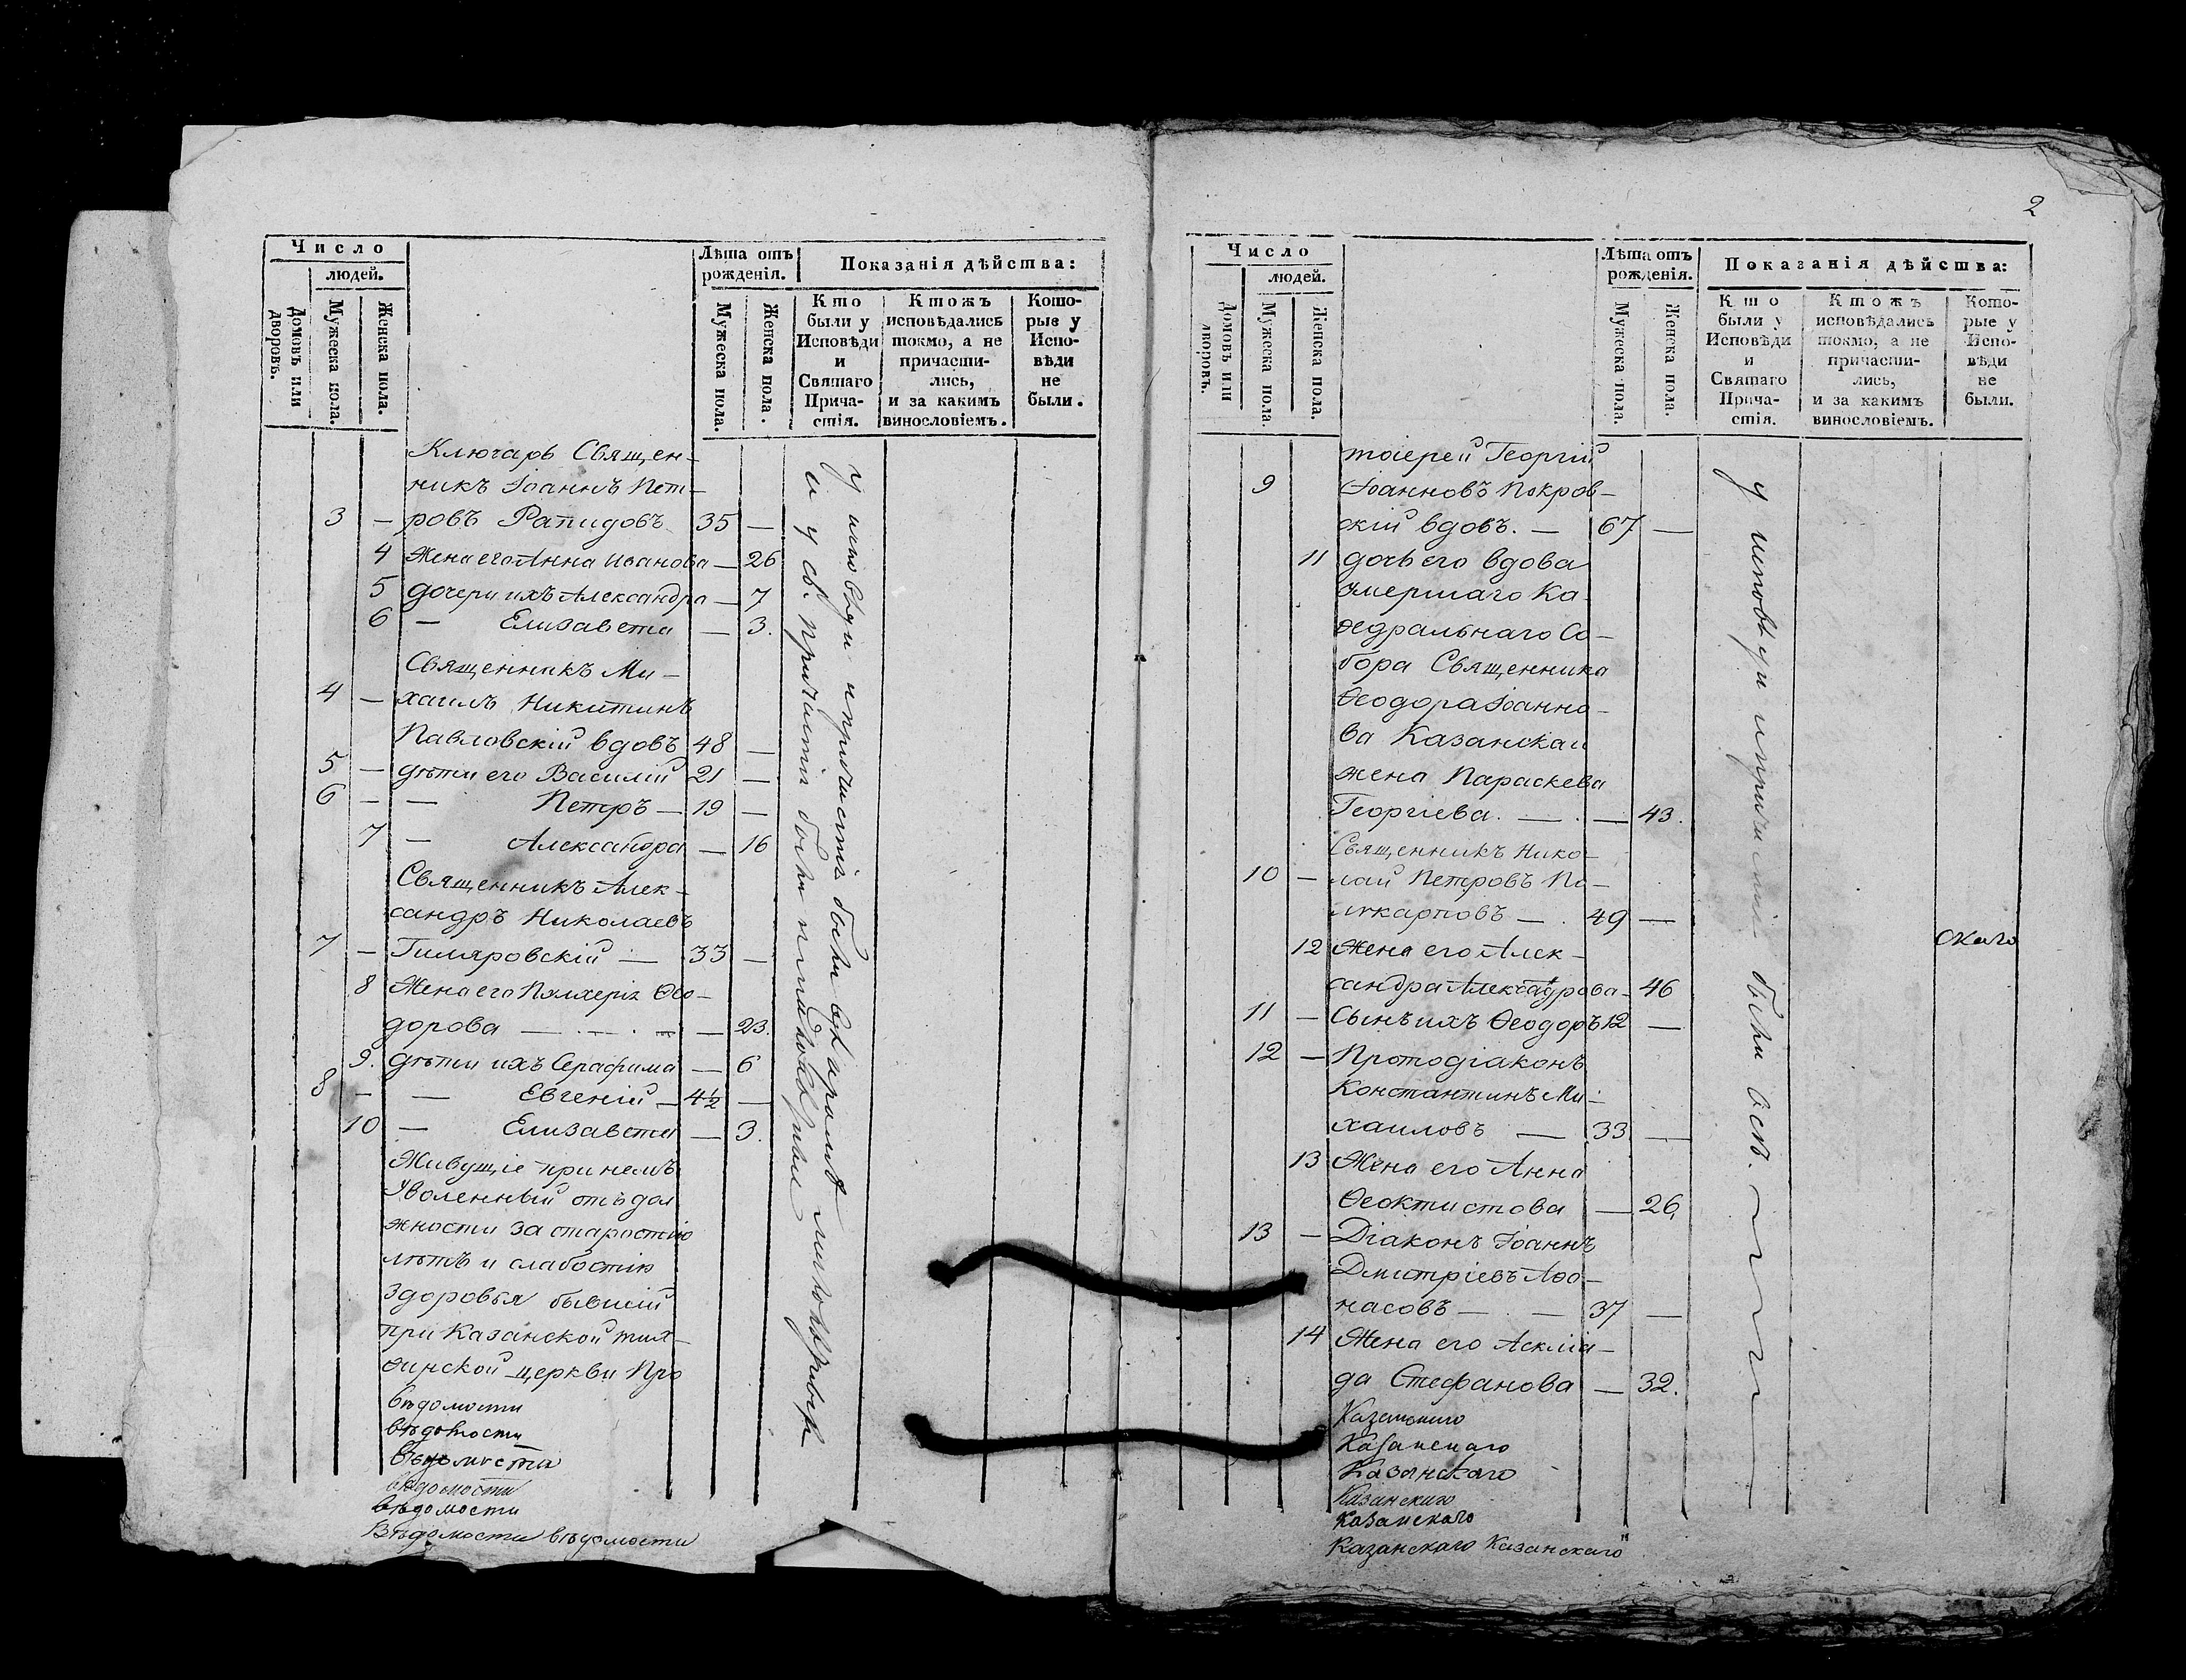 Число
людей.
Домовъ или дворовъ.
Мужеска пола.
Женска пола.
Лѣта отъ рожденія.
Мужеска пола.
Женска пола.
Показанія дѣйства:
Кто были у Исповѣди и Святаго Прича-стія.
Ктожъ исповѣдались токмо, а не причасти-лись, и за какимъ винословіемъ.
Кото-рые у Испо-вѣди не были.
Ключарь Священ-
никъ Іоаннъ Пет-
3 — ровъ Рапидовъ 35 —
4 Жена его Анна Иванова — 26
5 дочери ихъ Александра — 7
6 — Елизавета — 3.
Священникъ Ми-
4 — хаилъ Никитинъ
Павловскій вдовъ 48 —
5 — дѣти его Василій 21 —
6 — — Петръ — 19 —
7 — Александра — 16
Священникъ Алек-
сандръ Николаевъ
7 — Гиляровскій — 33 —
8 Жена его Пулхерія Ѳео-
дорова — — — — 23.
9. дѣти ихъ Серафима — 6
8 — — Евгеній — 4½ —
10 — Елизавета — 3.
Живущіе при немъ
Уволенный отъ дол
жности за старостію
лѣтъ и слабостію
здоровья бывшій
при Казанской тих-
винской церкви Про
вѣдомости
вѣдомости
вѣдомости
вѣдомости
вѣдомости
Вѣдомости вѣдомости
2
Число
людей.
Домовъ или дворовъ.
Мужеска пола.
Женска пола.
Лѣта отъ рожденія.
Мужеска пола.
Женска пола.
Показанія дѣйства:
Кто были у Исповѣди и Святаго Прича-стія.
Ктожъ исповѣдались токмо, а не причасти-лись, и за какимъ винословіемъ.
Кото-рые у Испо-вѣди не были.
тоіерей Георгій
9 Іоанновъ Покров-
скій вдовъ. — 67 —
11 дочь его вдова
умершаго Ка-
ѳедральнаго Со-
бора Священника
Ѳеодора Іоанно-
ва Казанскаи
жена Параскева
Георгіева. — — 43.
Священникъ Нико-
10 — лай Петровъ По-
ликарповъ — 49 —
12 Жена его Алек-
сандра Александрова — 46
11 — Сынъ ихъ Ѳеодоръ 12 —
12 — Протодіаконъ
Константинъ Ми-
хаиловъ — 33 —
13 Жена его Анна
Ѳеоктистова — 26.
13 — Діаконъ Іоаннъ
Дмитріевъ Аѳо-
насовъ — — 37 —
14 Жена его Асклиа-
да Стефанова — 32.
Казанскаго
Казанскаго
Казанскаго
Казанскаго
Казанскаго
Казанскаго Казанскаго
у исповѣди и причастія были всѣ.
скаго